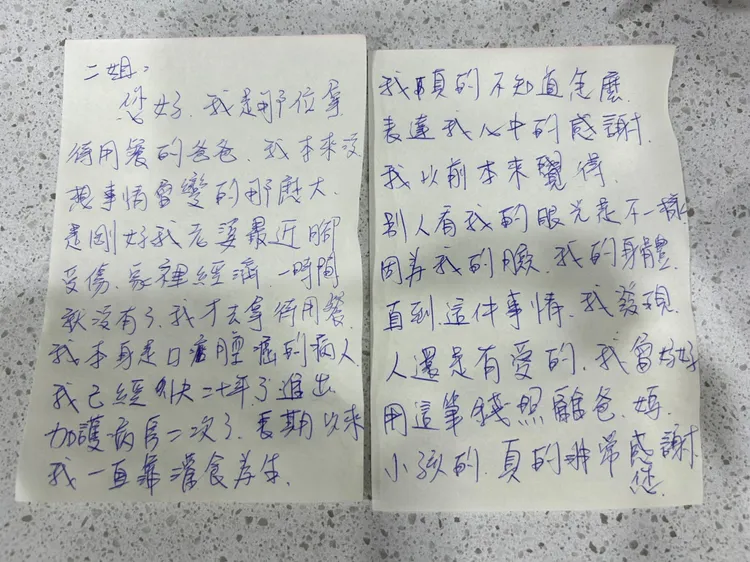 二姐,
您好, 我是那位拿
待用餐的爸爸, 我本來沒
想事情會變的那麼大,
是剛好我老婆最近腳
受傷, 家裡經濟, 一時間
就沒有了, 我才去拿待用餐,
我本身是口腔腫癌的病人,
我已經快二十年了進出
加護病房二次了, 長期以來
我一直靠灌食為生,
我真的不知道怎麼
表達我心中的感謝,
我以前本來覺得,
別人看我的眼光是不一樣
因為我的臉, 我的身體,
直到這件事情, 我發現,
人還是有愛的, 我會好好
用這筆錢照顧爸, 媽,
小孩的, 真的非常感謝
您,